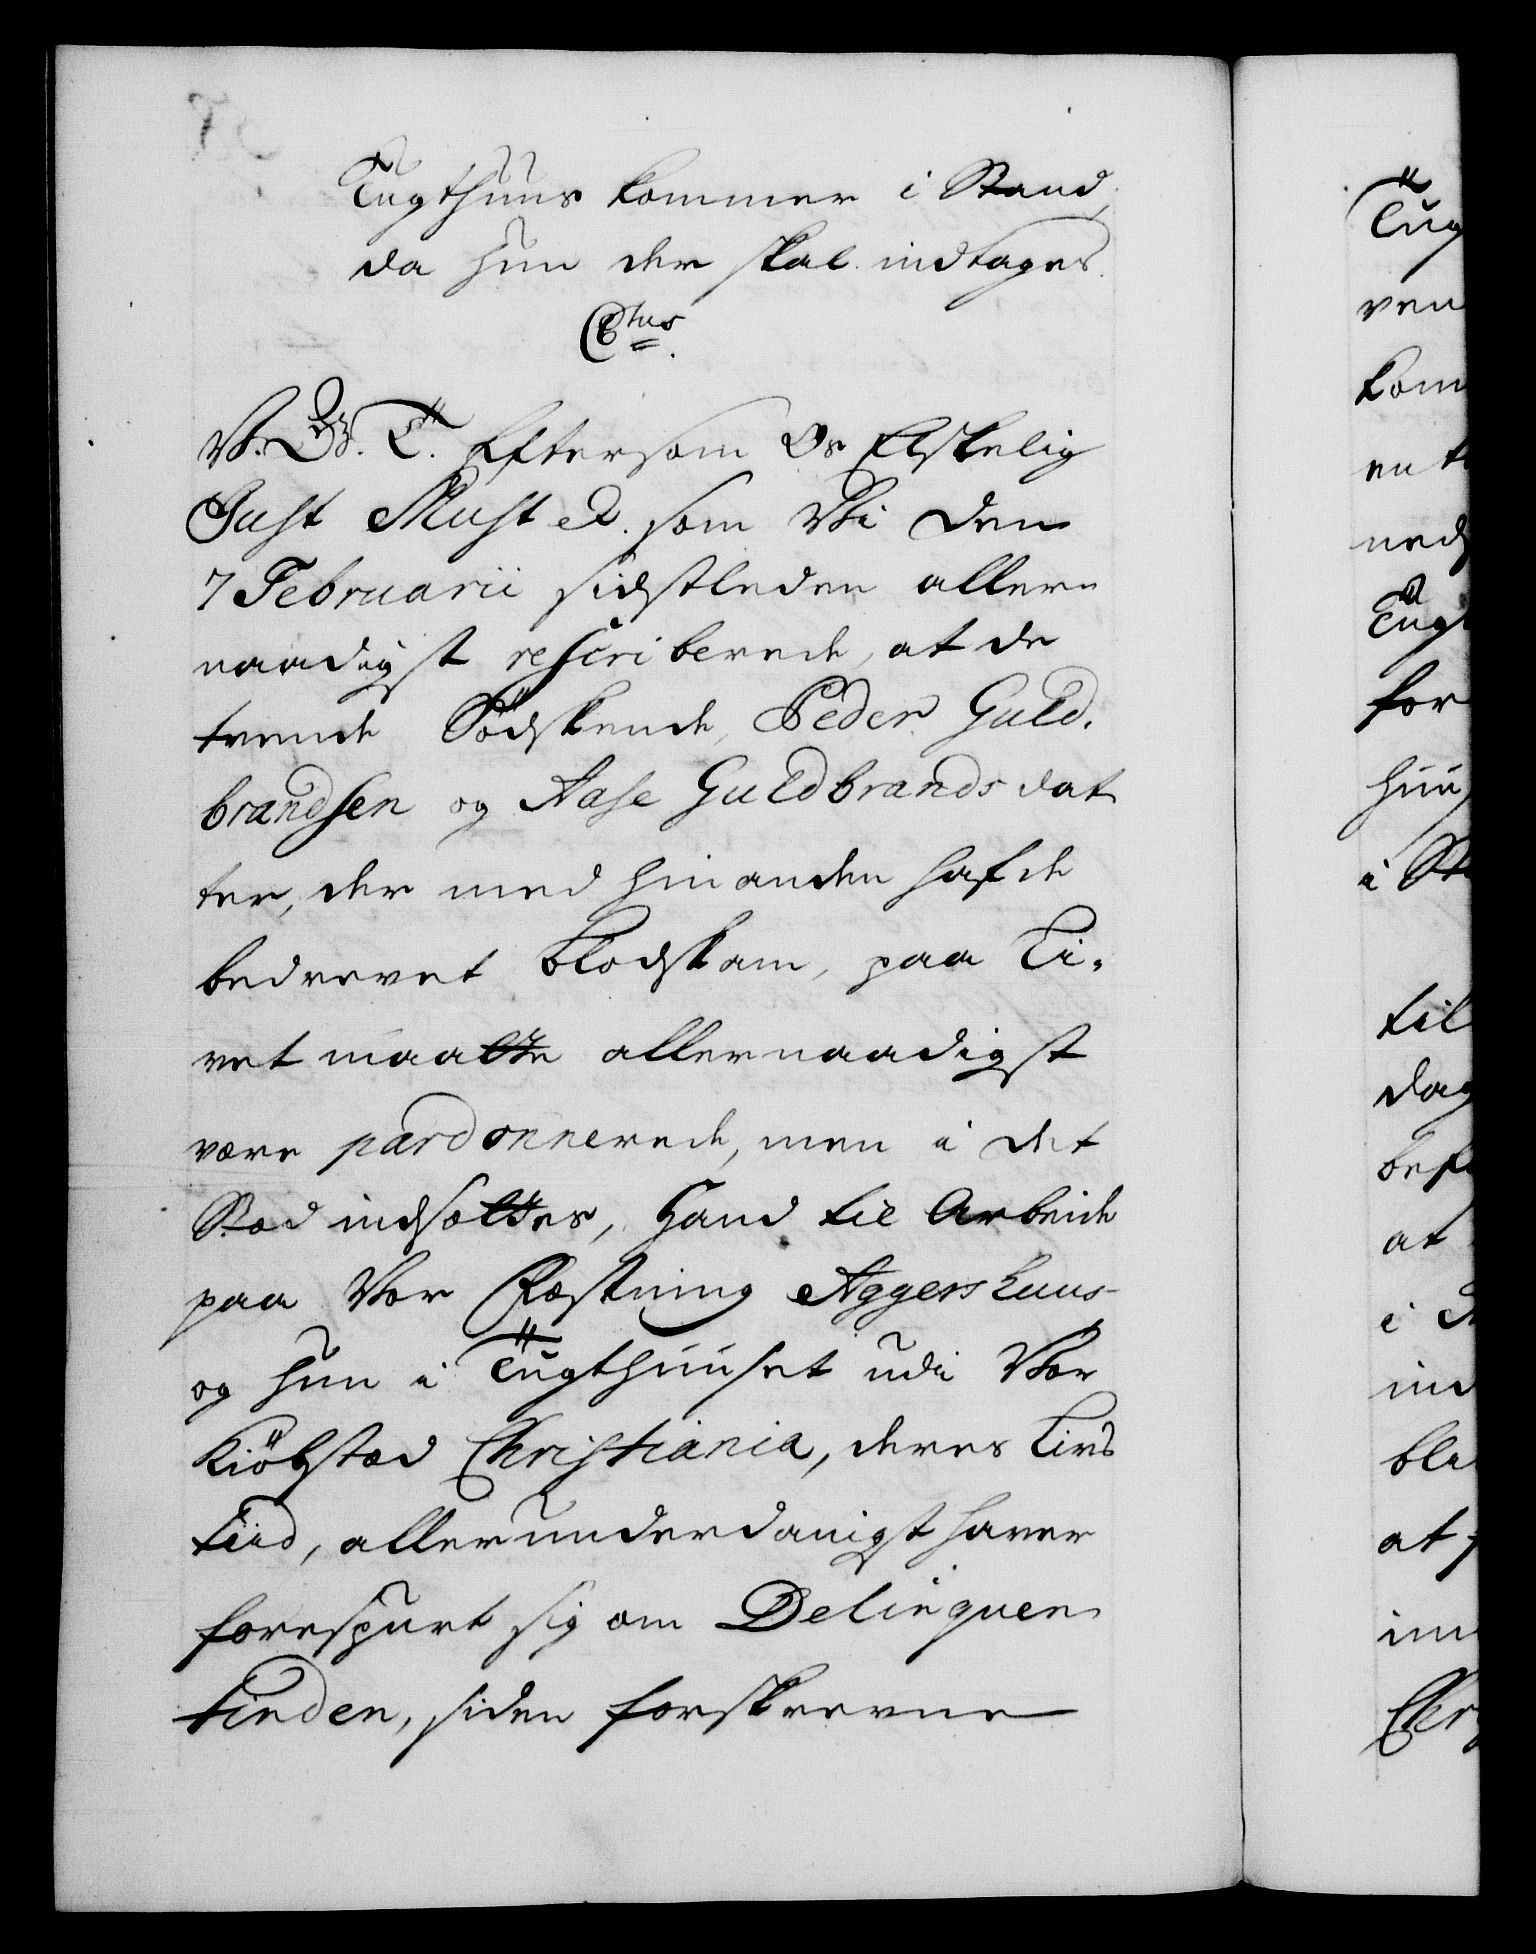 Tugthuus kommer i Stand,
da hun der skal indtages.
Ctus.
V. G. T. Eftersom Os Elskelig
Just Must etc. som Vi den
7 Februarii sidstleden aller-
naadigst rescriberede, at de
tvende Södskende, Peder Guld-
brandsen og Aase Guldbrandsdat-
ter, der med hinanden hafde
bedrevet Blodskam, paa Li-
vet maatte allernaadigst
være pardonnerede, men i det
Sted indsættes, Hand til Arbeide
paa Vor Fæstning Aggershuus
og hun i Tugthuuset udi Vor
Kiöbstæd Christiania, deres Livs
tiid, allerunderdanigst haver
forespurt sig om Delinquen-
tinden, siden forskrevne
Tug
ven
kom
en
ned
Tugt
for
huu
i St
til
dag
bef
at
i
ind
ble
at
im
Chr